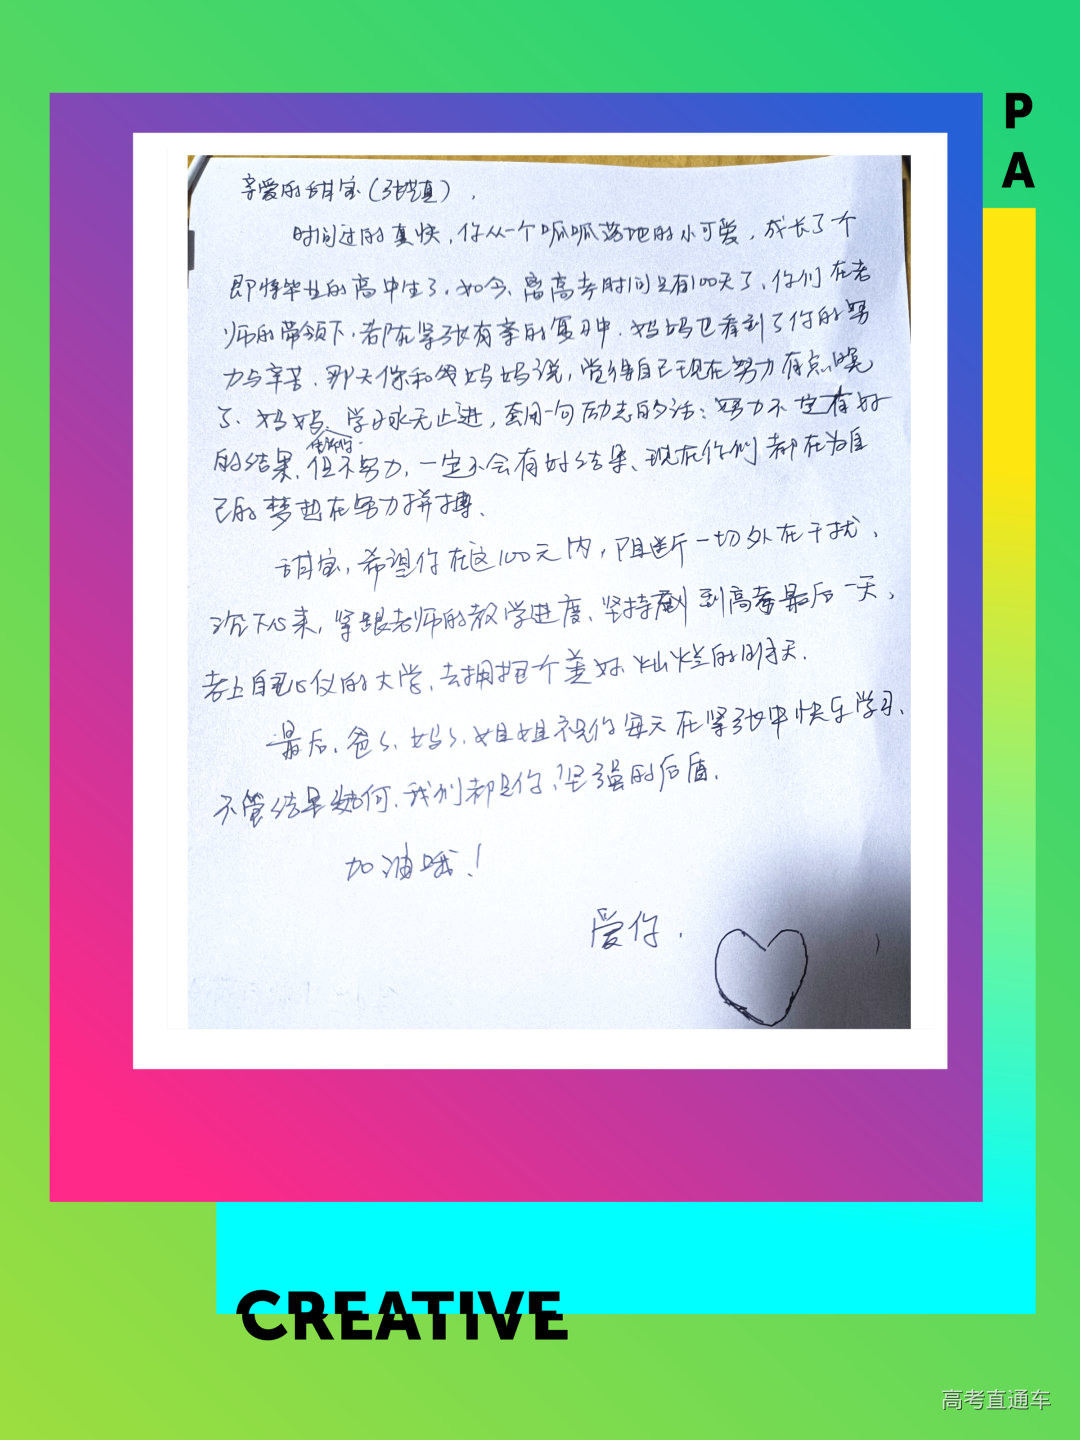 P
A
亲爱的甜宝（张慥真），
时间过的真快，你从一个呱呱落地的小可爱，成长了个
即将毕业的高中生了，如今，离高考时间只有100天了，你们在老
师的带领下，都在紧张有序的复习中，妈妈也看到了你的努
力与辛苦，那天你和妈妈说，觉得自己现在努力有点晚
了，妈妈 学习永无止进，套用一句励志的话：努力不一定有好
告诉你
的结果，但不努力，一定不会有好结果，现在你们都在为自
己的梦想在努力拼搏。
甜宝，希望你在这100天内，阻断一切外在干扰，
沉下心来，紧跟老师的教学进度，坚持到高考最后一天，
考上自己心仪的大学，去拥抱个美好灿烂的明天。
最后，爸爸、妈妈、姐姐祝你每天在紧张中快乐学习，
不管结果如何，我们都是你坚强的后盾。
加油哦！
爱你，
CREATIVE
高考直通车